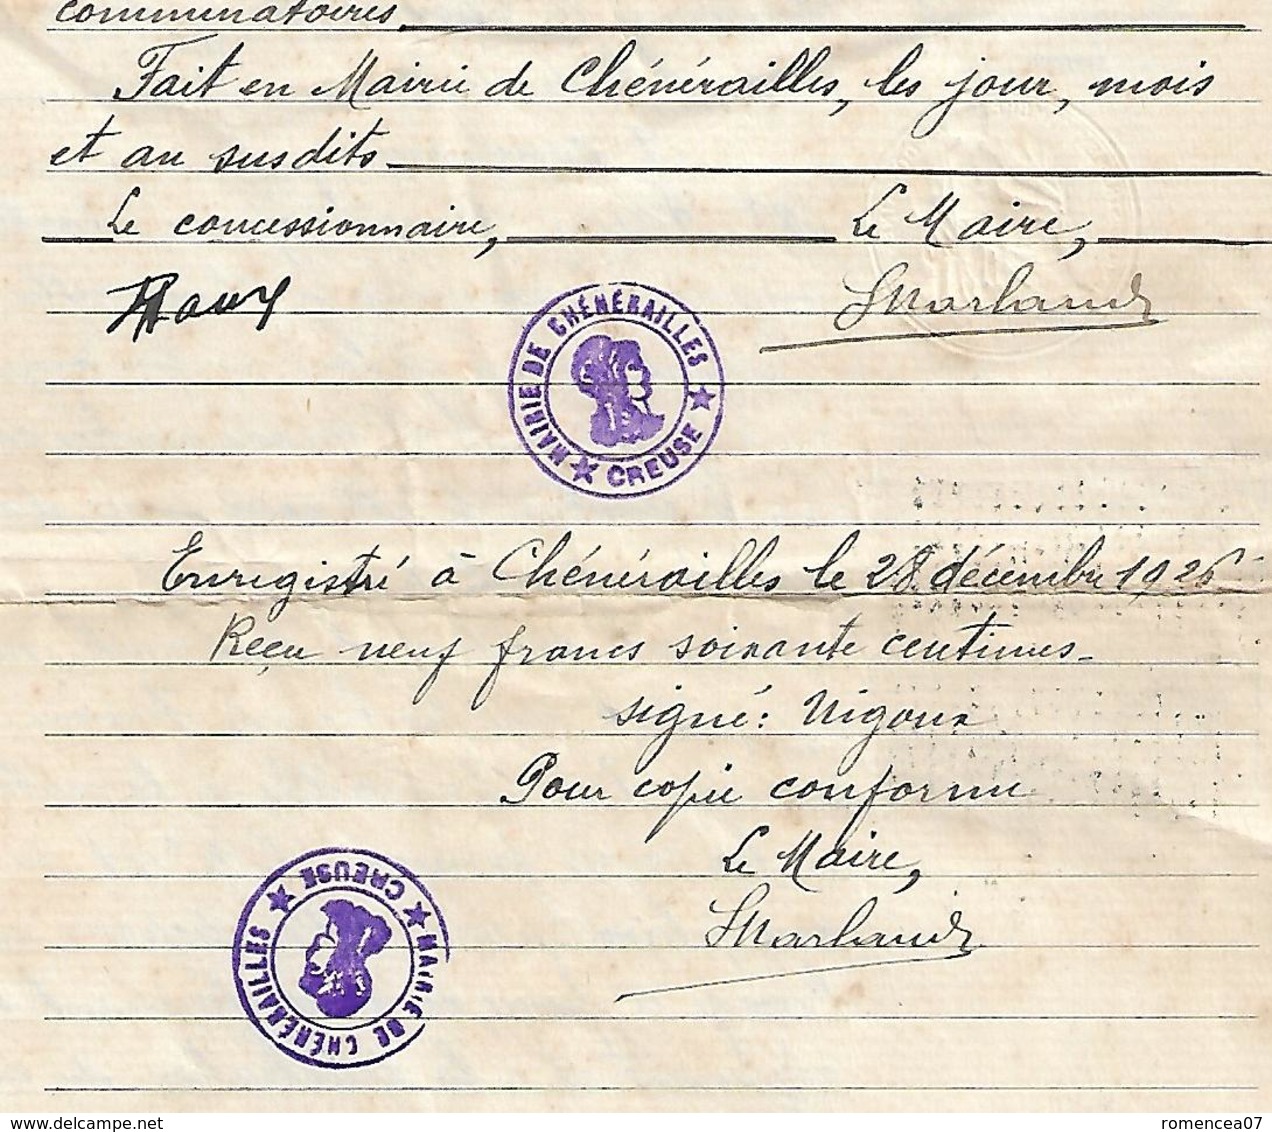 comminatoires,
Fait en Mairie de Chénérailles, les jour, mois
et an susdits.
Le concessionnaire, Le Maire,
MAIRIE DE CHÉNÉRAILLES ★ CREUSE ★
Enregistré à Chénérailles le 28 décembre 1926
Reçu neuf francs soixante centimes.
signé: Vigoux
Pour copie conforme
Le Maire,
MAIRIE DE CHÉNÉRAILLES ★ CREUSE ★
www.delcampe.net romencea07